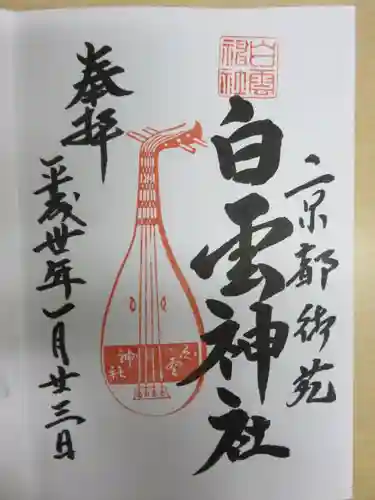 京都御苑
白雲神社
白雲神社
奉拝
白雲
神社
平成丗年一月廿三日